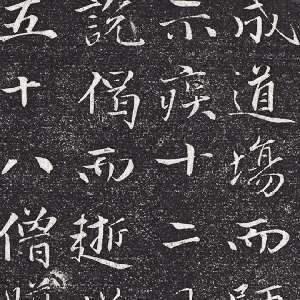 成道場而
示疾十二
説偈而逝
五十八僧